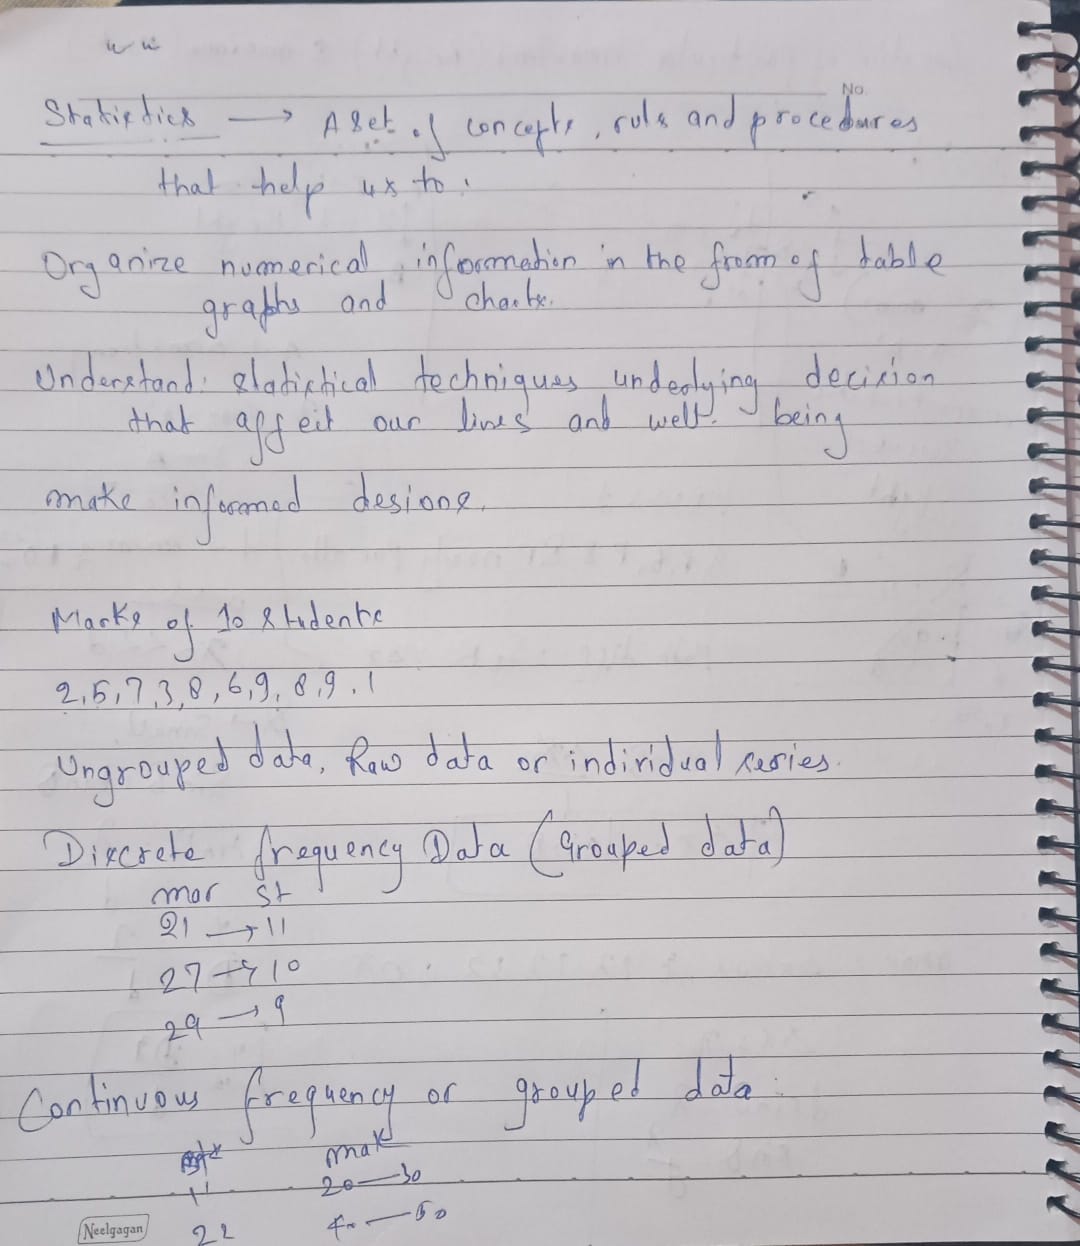 No.
Statistics → A set of concepts, rule and procedures
that help us to.
Organize numerical information in the from of table
graphs and charts.
Understand statistical techniques underlying decision
that affeit our lines and well being
make informed desions.
Marks of 10 students
2,5,7,3,8,6,9,8,9,1
Ungrouped data, Raw data or individual series.
Discrete frequency Data (Grouped data)
mar st
21 → 11
27 → 10
29 → 9
Continuous frequency or grouped data
mak
11 20—30
22 40—50
Neelgagan